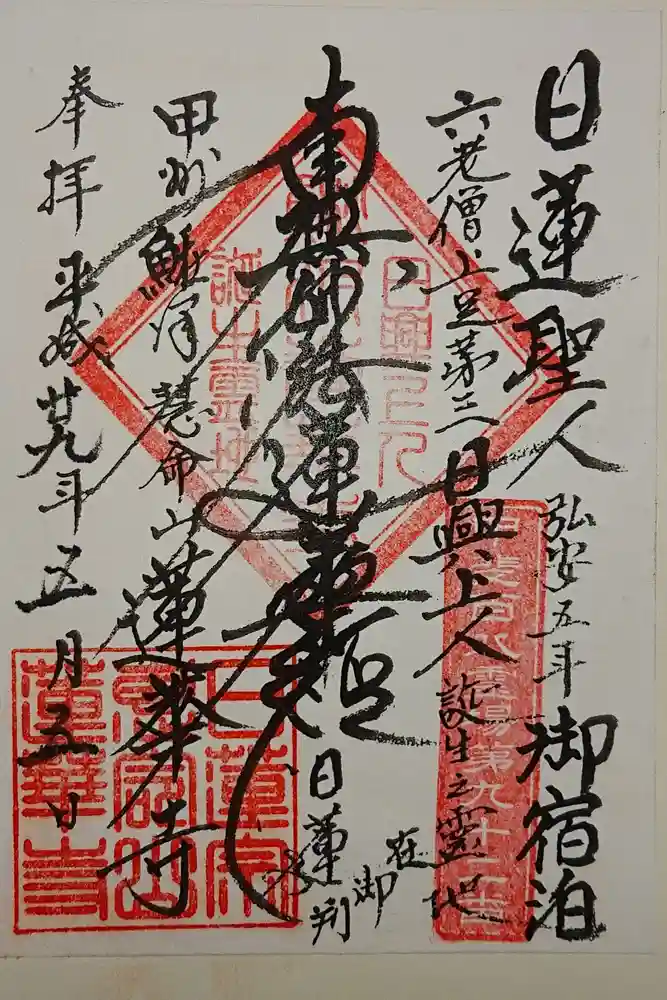 日蓮聖人 弘安五年 御宿泊
六老僧上足第三 日興上人 誕生之霊地
南無妙法蓮華経 日蓮 在御判
甲州鰍澤 慧命山 蓮華寺
奉拝 平成廿九年五月五日
日興上人
誕生霊地
蓮華寺